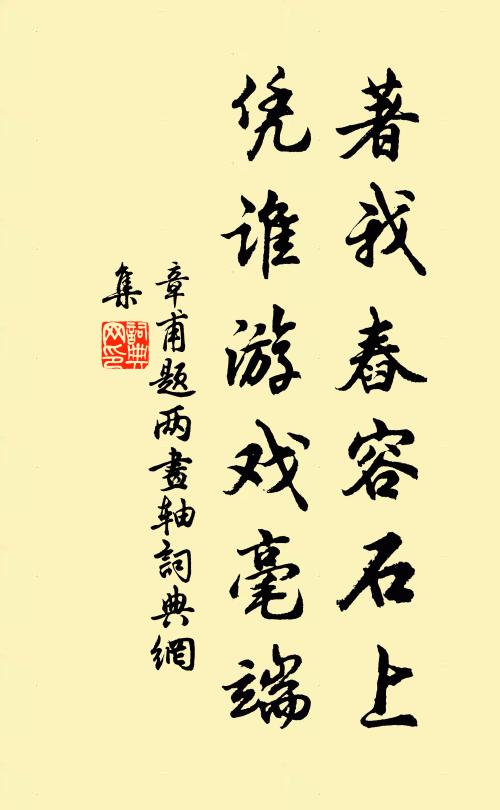 著我舂容石上
凭谁游戏毫端
章甫题两畫轴詞典網
集
詞典
网印